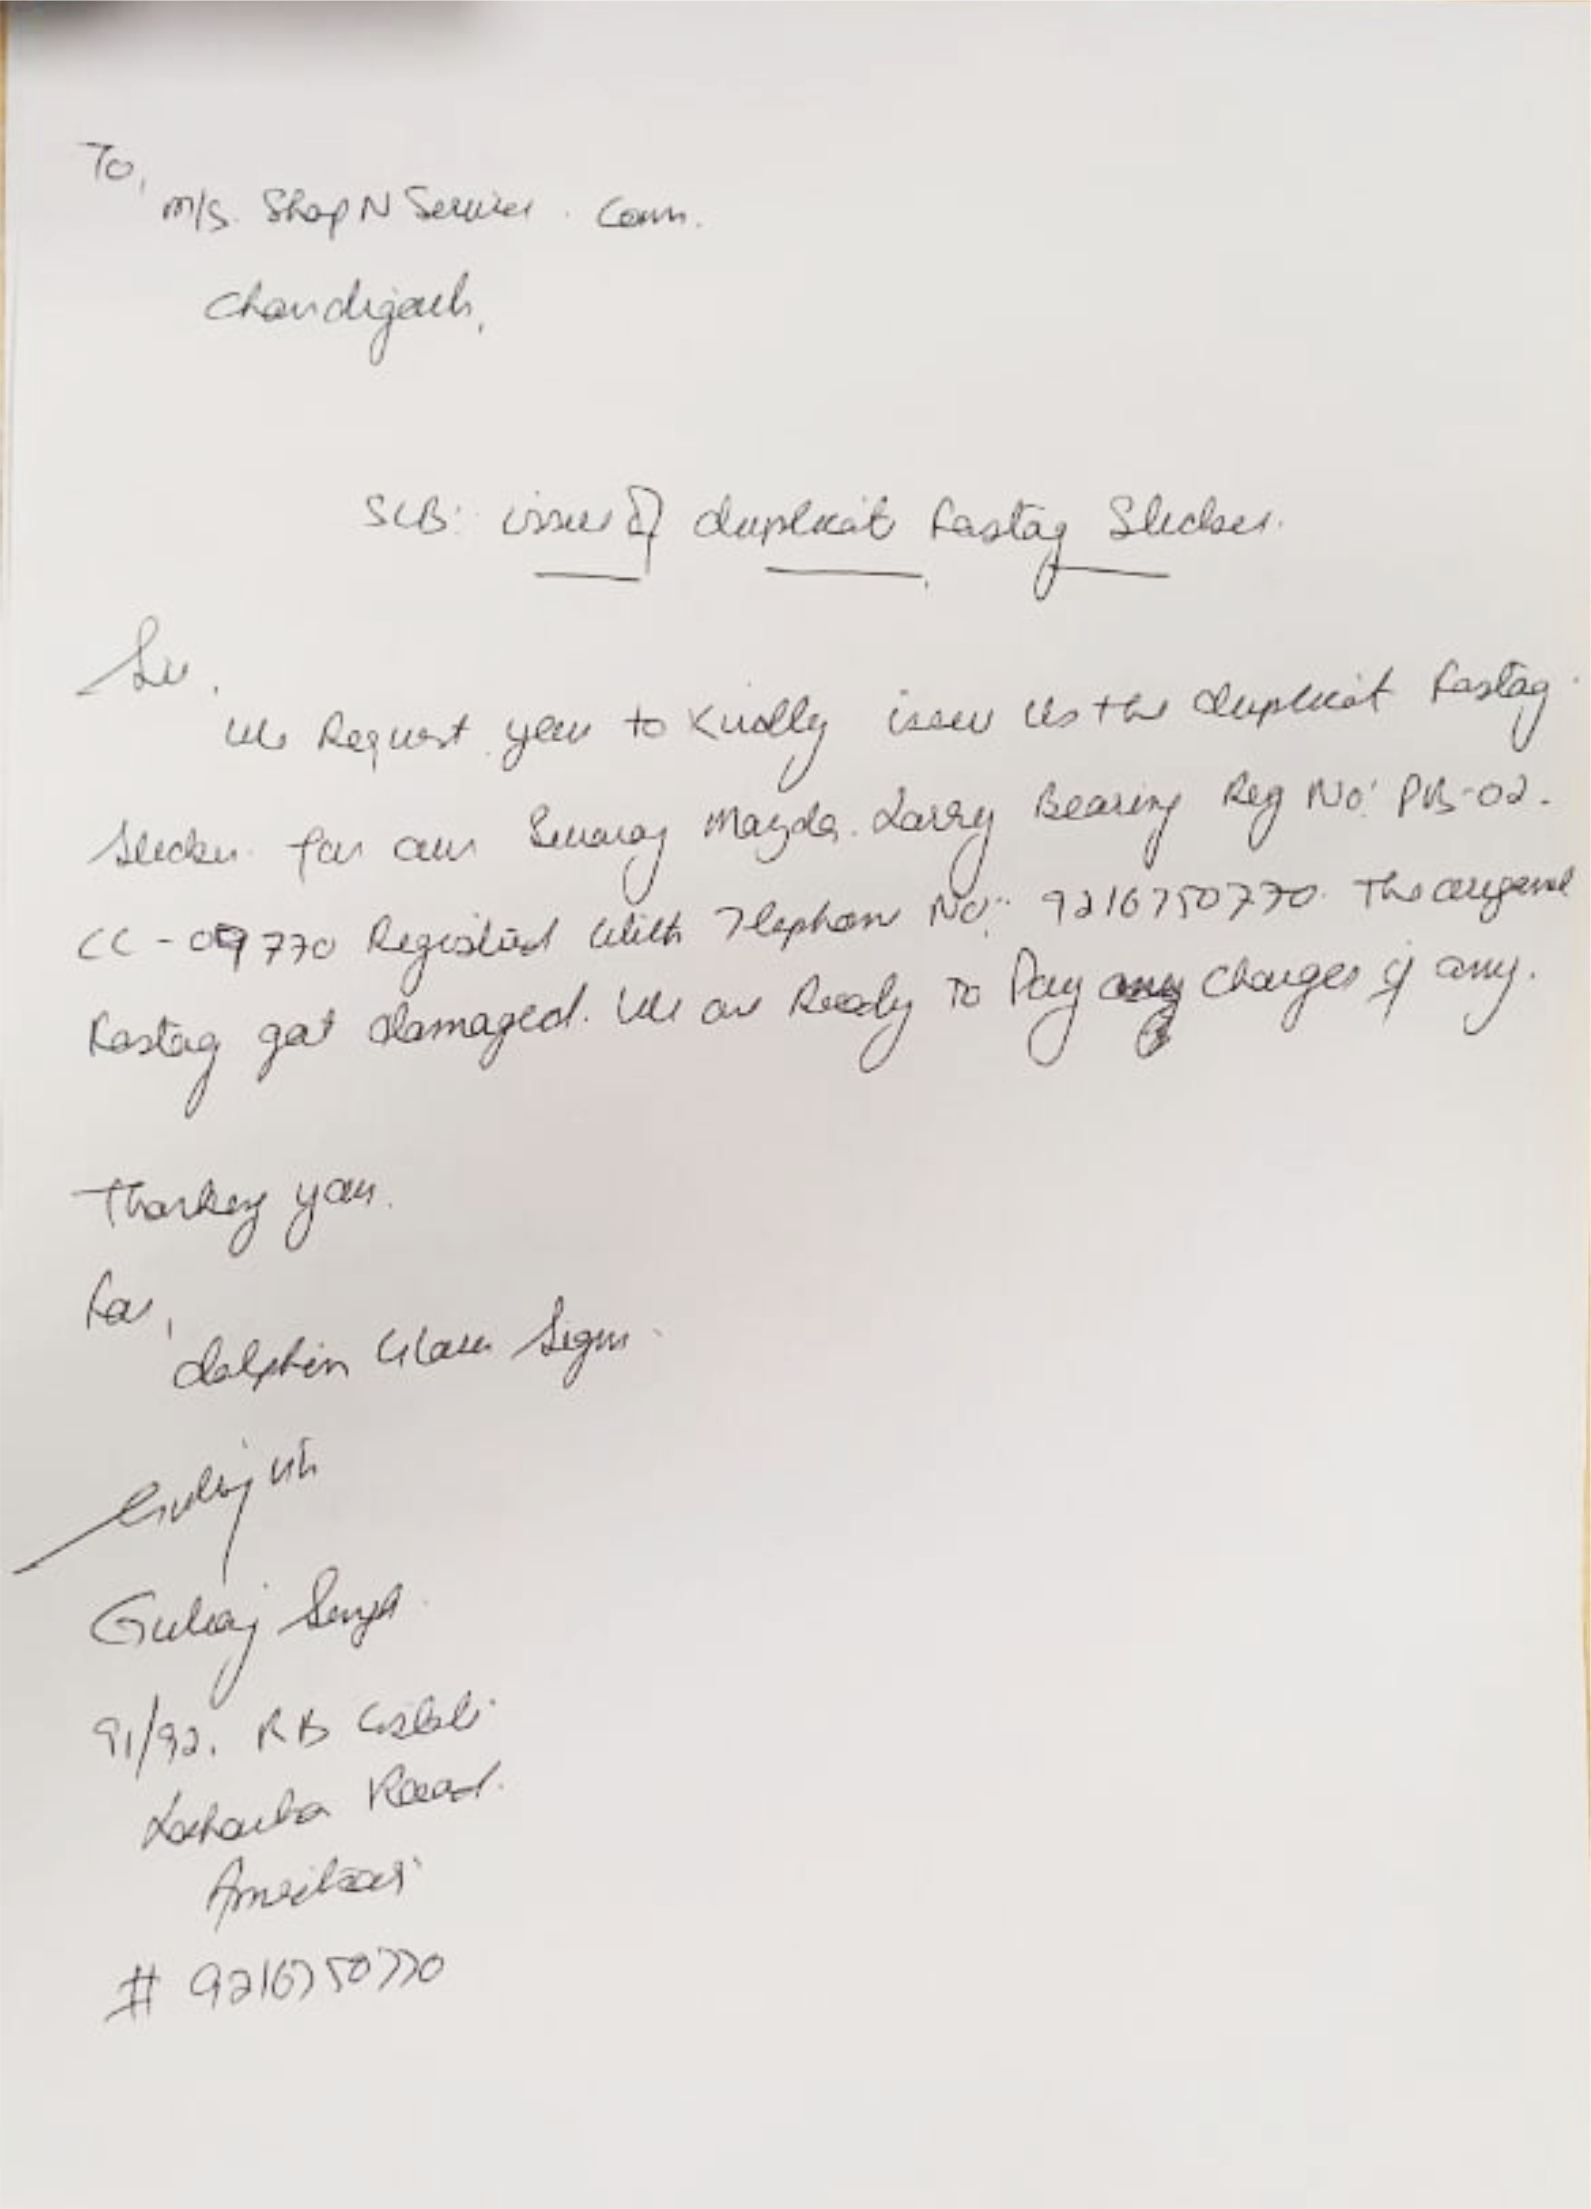 To,
M/s. Shop N Services. Com.
Chandigarh,
SUB: issue of duplicat Fastag Sticker.
Sir,
We Request you to Kindly issue us the duplicat Fastag
Sticker for our Swaraj Mazda Lorry Bearing Reg No: PB-02.
CC-09770 Registerd With Telephon No: 9216750770. The original
Fastag got damaged. We are Ready To Pay any charges if any.
Thanking you.
For,
dolphin Glass Signs.
Gulraj Singh
91/92. RB Estate
Loharka Road.
Amritsar
# 9216750770